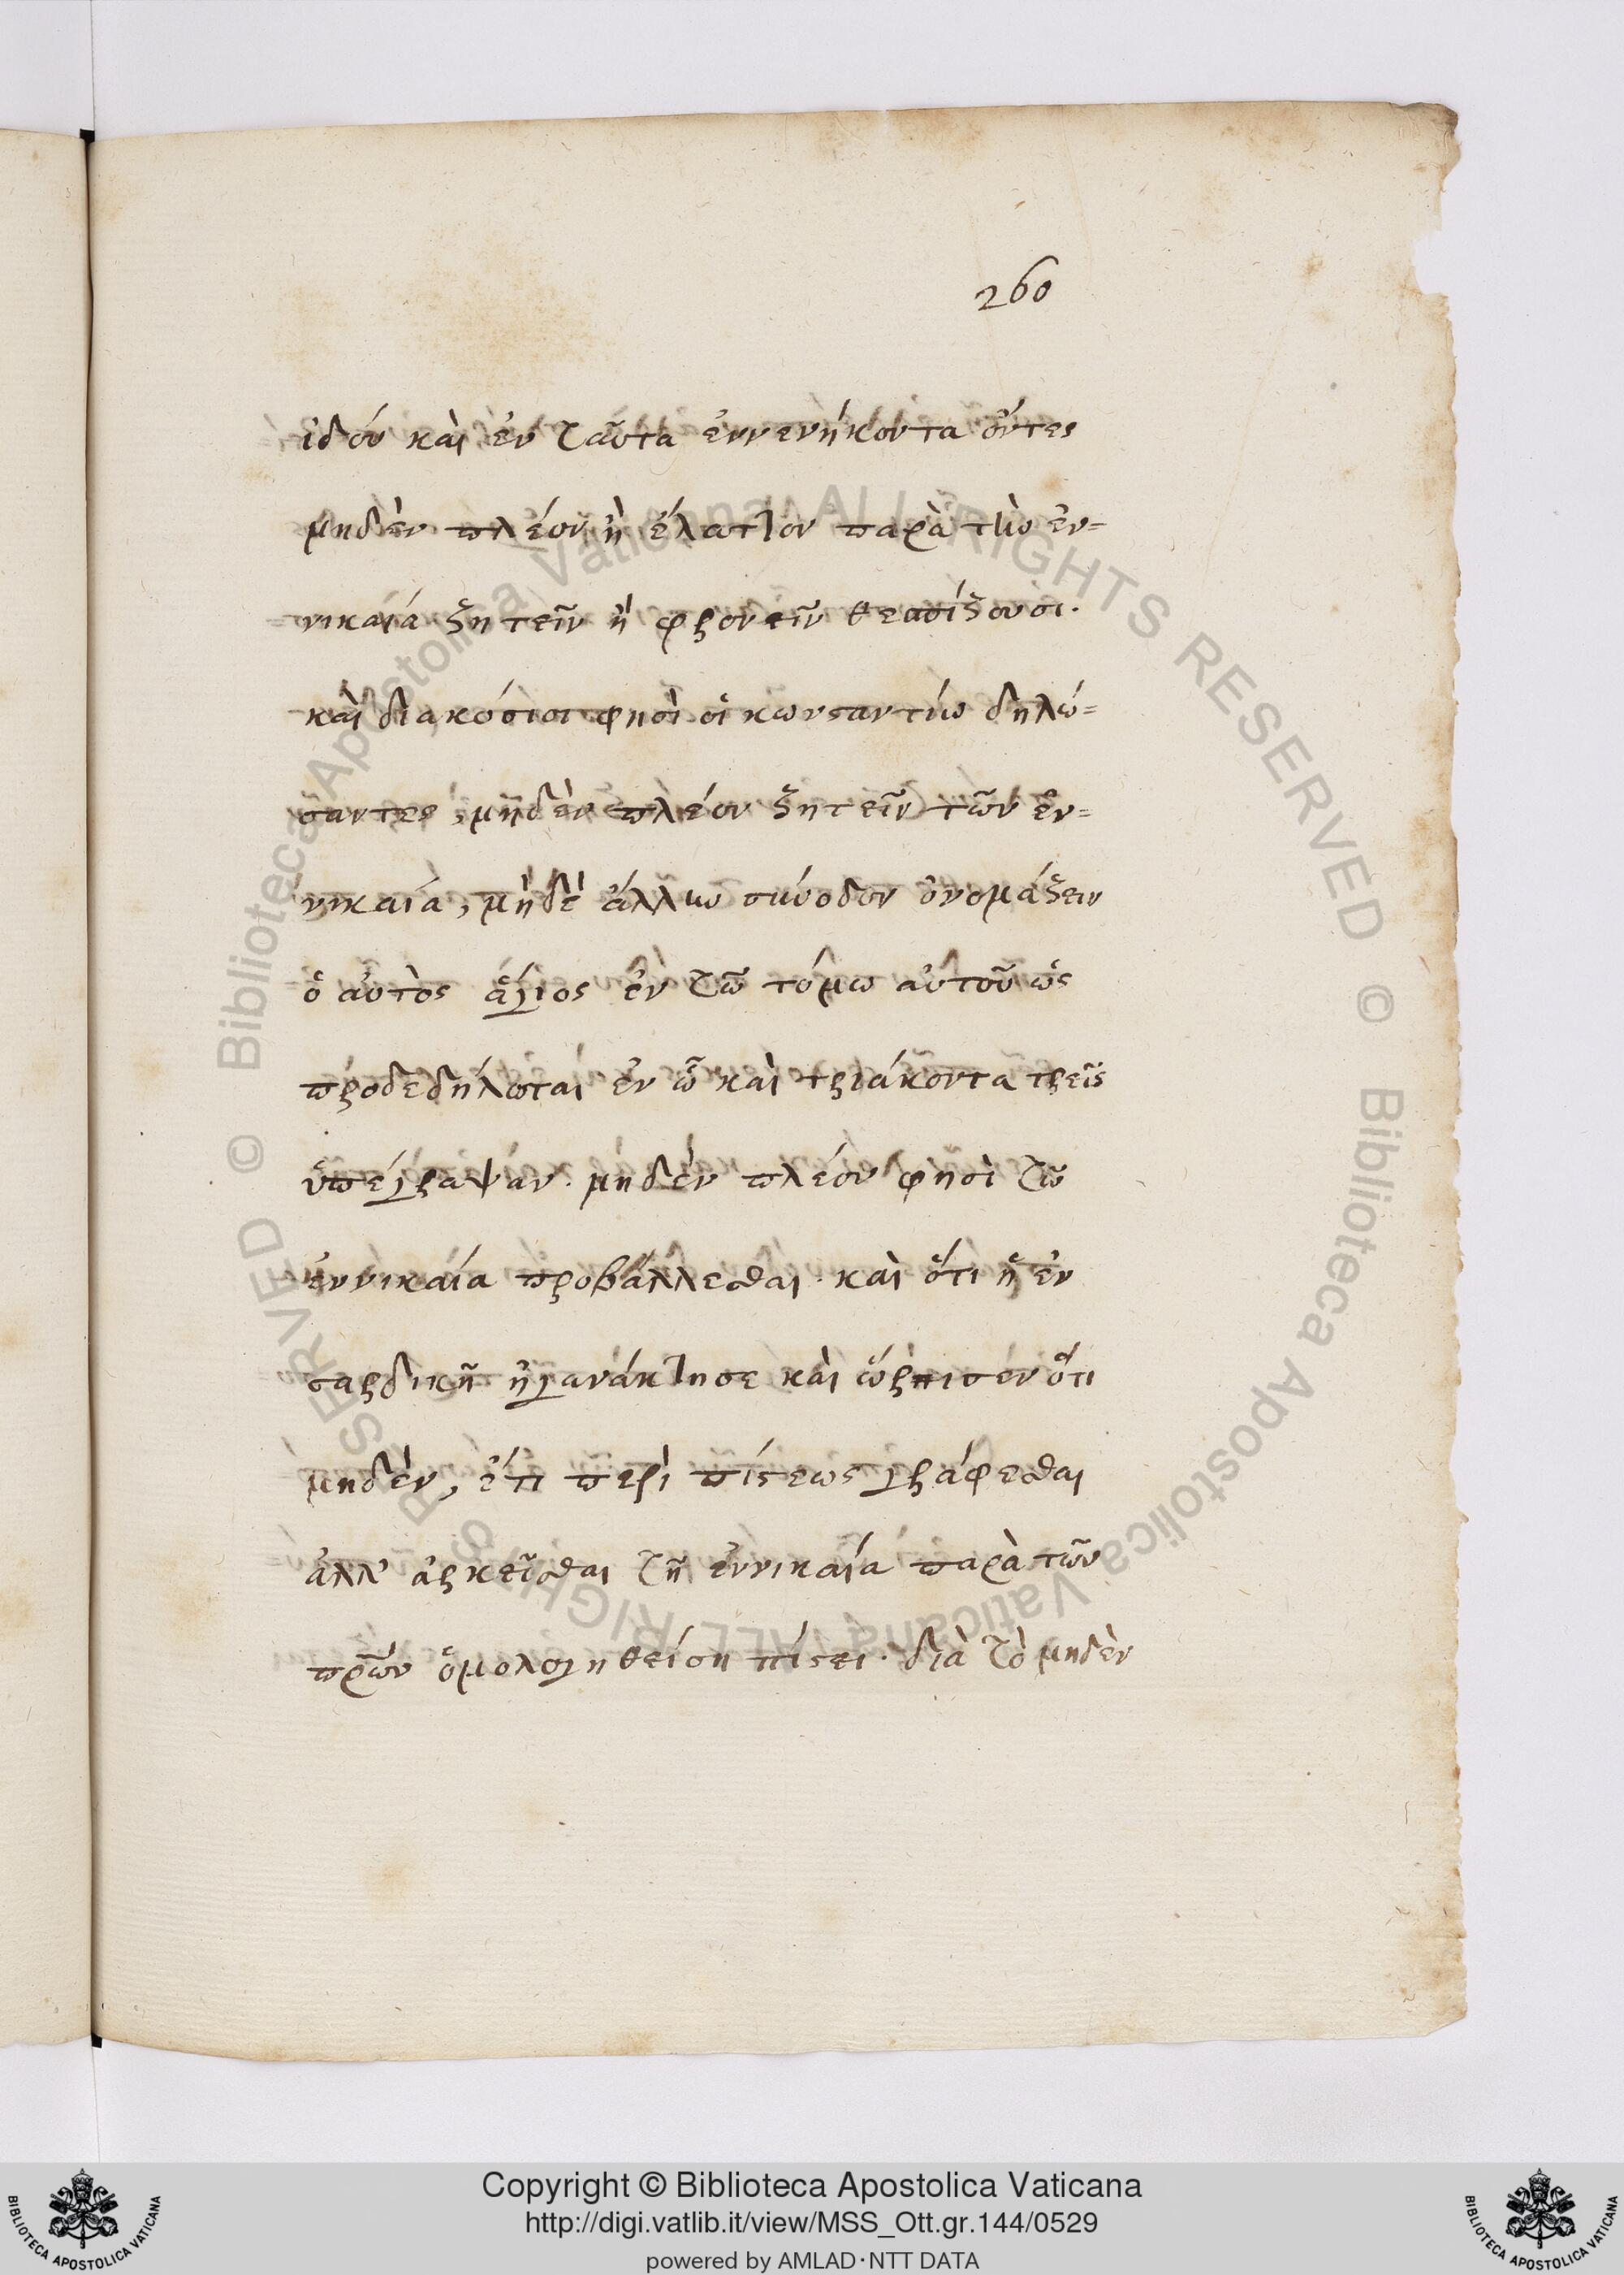 260
ἰδοὺ καὶ ἐν ταῦτα ἐννενήκοντα ὄντες
μηδὲν πλέον ἢ ἔλαττον παρὰ τὴν ἐν-
νικαία ζητεῖν ἢ φρονεῖν θεσπίζουσι.
καὶ διακόσιοι φησὶ οἱ κωνσταντίω δηλώ-
σαντες, μηδὲν πλέον ζητεῖν τῶν ἐν-
νικαία, μηδὲ ἄλλην σύνοδον ὀνομάζειν
ὁ αὐτὸς ἅγιος ἐν τῶ τόμω αὐτοῦ ὡς
προδεδήλωται ἐν ὧ καὶ τριάκοντα τρεῖς
ὑπέγραψαν. μηδὲν πλέον φησὶ τῶ
ἐννικαία προβάλλεσθαι. καὶ ὅτι ἡ ἐν
σαρδικῆ ἠγανάκτησε καὶ ὥρισεν ὅτι
μηδὲν, ἔτι περὶ πίστεως γράφεσθαι
ἀλλ' ἀρκεῖσθαι τῆ ἐννικαία παρὰ τῶν
πρῶν ὁμολογηθείση πίστει. διὰ τὸ μηδὲν
Copyright © Biblioteca Apostolica Vaticana
http://digi.vatlib.it/view/MSS_Ott.gr.144/0529
powered by AMLAD·NTT DATA
BIBLIOTECA APOSTOLICA VATICANA
BIBLIOTECA APOSTOLICA VATICANA
© Biblioteca Apostolica Vaticana ALL RIGHTS RESERVED © Biblioteca Apostolica Vaticana ALL RIGHTS RESERVED